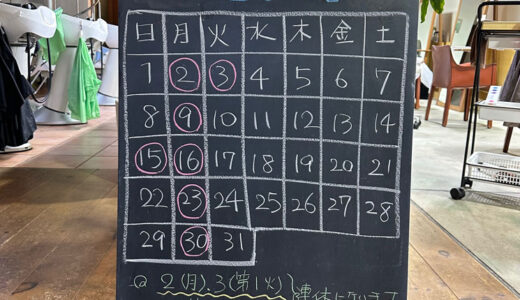 日 月 火 水 木 金 土
1 2 3 4 5 6 7
8 9 10 11 12 13 14
15 16 17 18 19 20 21
22 23 24 25 26 27 28
29 30 31
2(月).3(第1火)